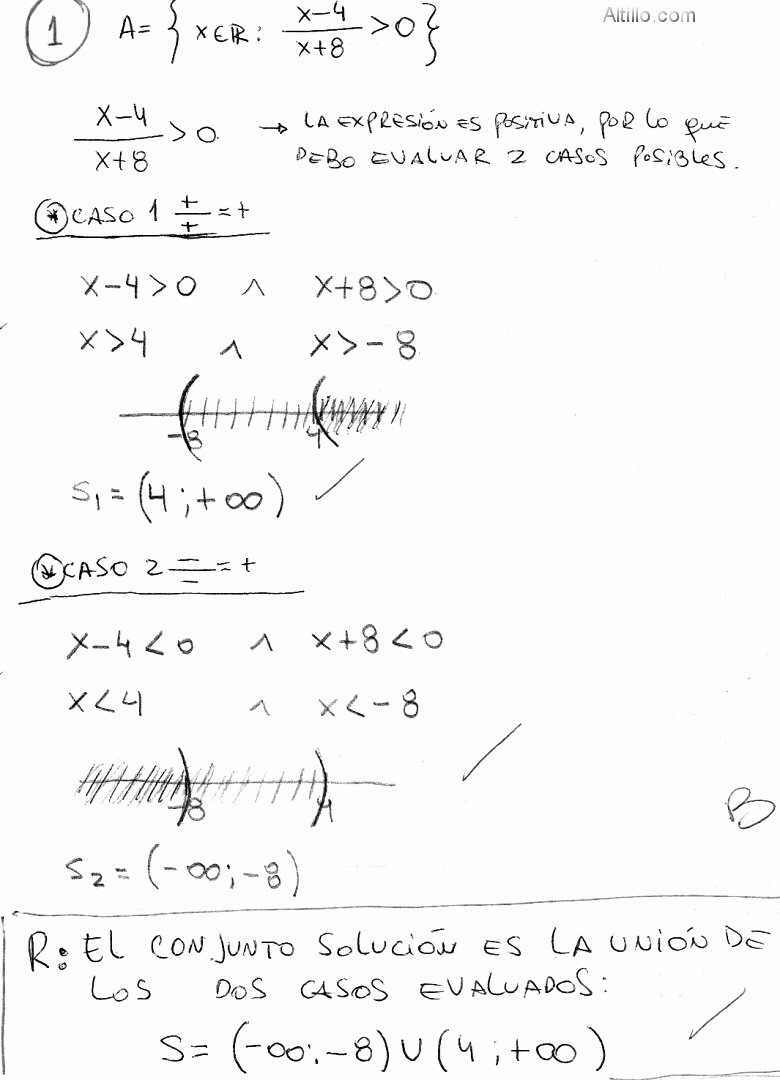 Altillo.com
1 A = { x ∈ ℝ : (x-4)/(x+8) > 0 }
(x-4)/(x+8) > 0 → LA EXPRESIÓN ES POSITIVA, POR LO QUE
DEBO EVALUAR 2 CASOS POSIBLES.
* CASO 1 +/+ = +
x-4>0 ∧ x+8>0
x>4 ∧ x>-8
-8 4
S₁ = (4 ; +∞) ✓
* CASO 2 -/- = +
x-4<0 ∧ x+8<0
x<4 ∧ x<-8
✓
-8 4
B
S₂ = (-∞; -8)
R: EL CONJUNTO SOLUCIÓN ES LA UNIÓN DE
LOS DOS CASOS EVALUADOS:
S = (-∞; -8) ∪ (4 ; +∞) ✓